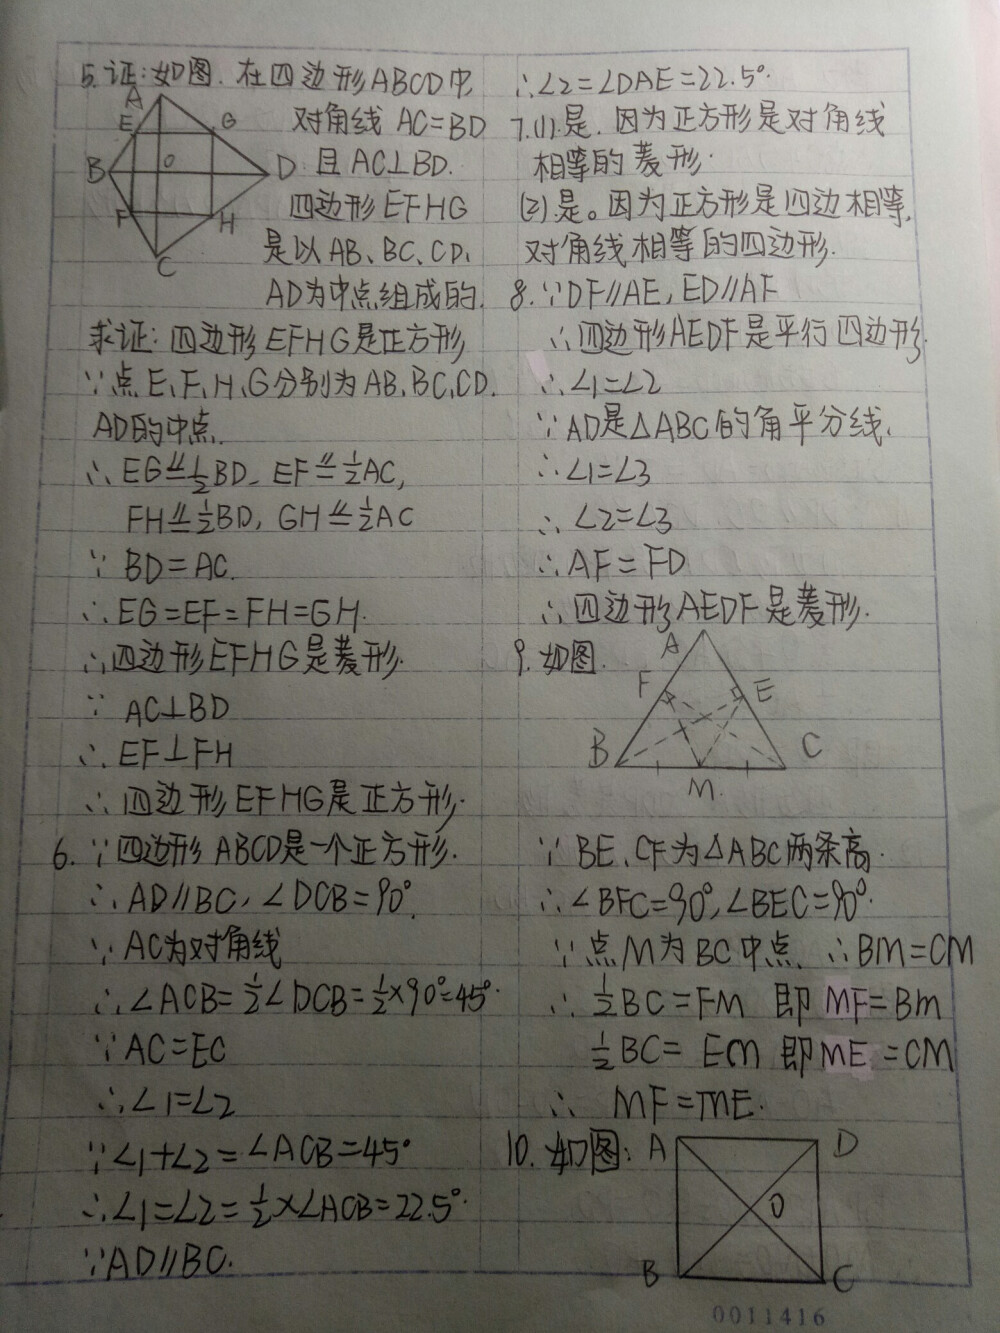 5.证:如图.在四边形ABCD中,
对角线 AC=BD
且AC⊥BD.
四边形EFHG
是以AB、BC、CD、
AD为中点组成的.
A
E
G
B
O
D
F
H
C
求证:四边形EFHG是正方形,
∵点E、F、H、G分别为AB、BC、CD、
AD的中点.
∴EG⫽=½BD、EF⫽=½AC,
FH⫽=½BD, GH⫽=½AC
∵ BD=AC.
∴EG=EF=FH=GH.
∴四边形EFHG是菱形.
∵ AC⊥BD
∴ EF⊥FH
∴四边形EFHG是正方形.
6.∵四边形ABCD是一个正方形.
∴AD//BC,∠DCB=90°.
∵AC为对角线
∴∠ACB=½∠DCB=½×90°=45°.
∵AC=EC
∴∠1=∠2
∵∠1+∠2=∠ACB=45°
∴∠1=∠2=½×∠ACB=22.5°.
∵AD//BC.
∴∠2=∠DAE=22.5°.
7.(1).是.因为正方形是对角线
相等的菱形.
(2).是。因为正方形是四边相等,
对角线相等的四边形.
8.∵DF//AE,ED//AF
∴四边形AEDF是平行四边形.
∴∠1=∠2
∵AD是△ABC的角平分线,
∴∠1=∠3
∴∠2=∠3
∴AF=FD
∴四边形AEDF是菱形.
9.如图.
A
F
E
B
C
M.
∵BE、CF为△ABC两条高.
∴∠BFC=90°,∠BEC=90°.
∵点M为BC中点,∴BM=CM
∴½BC=FM 即MF=BM
½BC=EM 即ME=CM
∴ MF=ME.
10.如图:
A
D
O
B
C
0011416